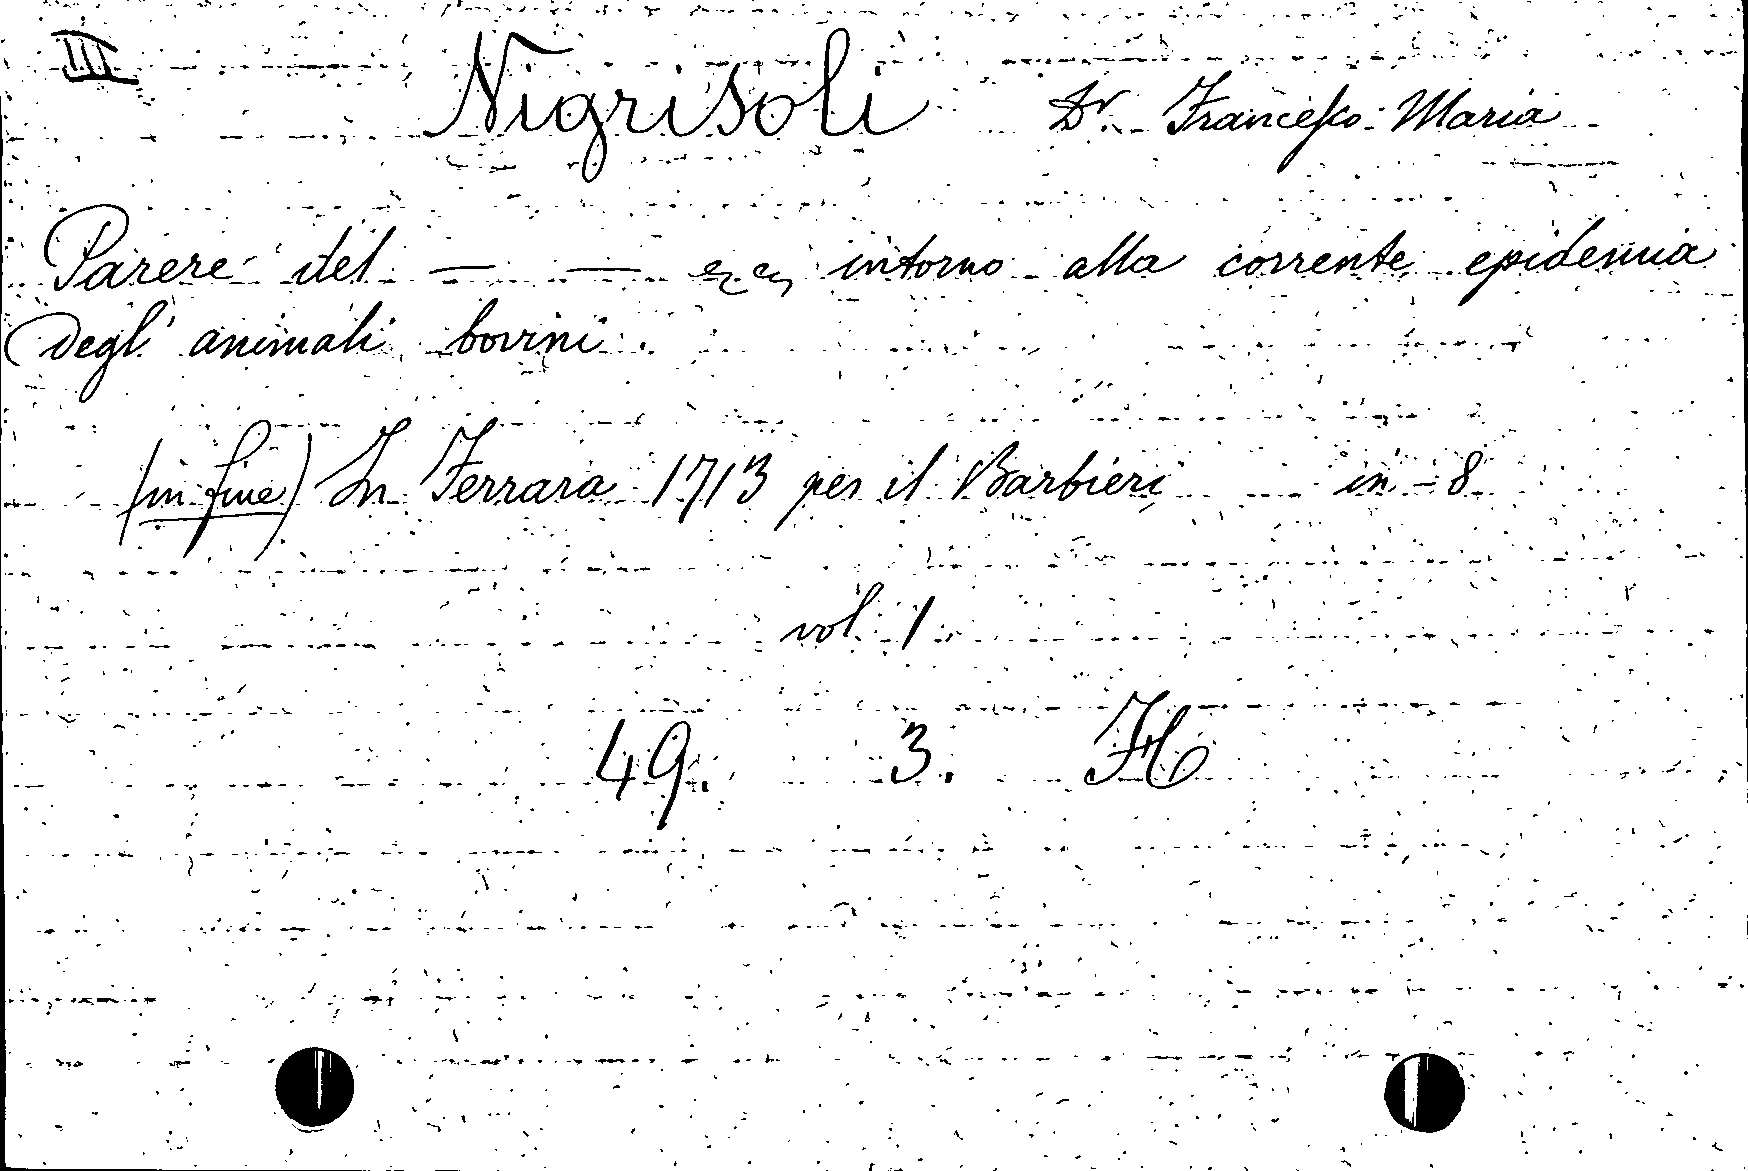 III
Nigrisoli Dr. Francesco Maria
Parere del — — ec. ec. intorno alla corrente epidemia
degl' animali bovini.
(in fine) In Ferrara 1713 per il Barbieri in-8
vol. 1
49. 3. H